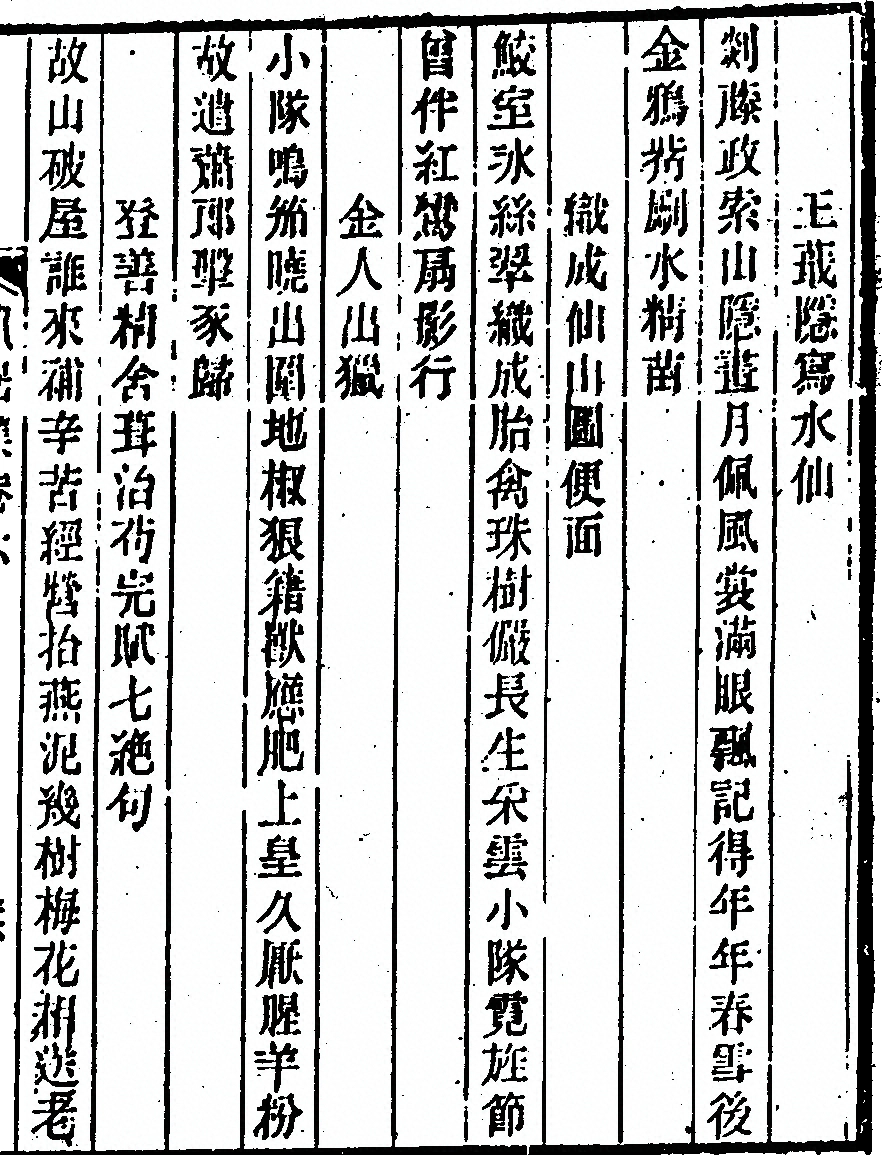 王蕺隱寫水仙
剡藤政索山隱畫月佩風裳滿眼飄記得年年春雪後
金鴉觜劚水精苗
織成仙山圖便面
鮫室氷絲翠織成胎禽珠樹儼長生采雲小隊霓旌節
曾伴紅鸞扇影行
金人出獵
小隊鳴笳曉出圍地椒狼籍獸應肥上皇久厭腥羊粉
故遣蕭郎擊豕歸
登善精舍葺治而完賦七絶句
故山破屋誰來補辛苦經營拾燕泥幾樹梅花相送老